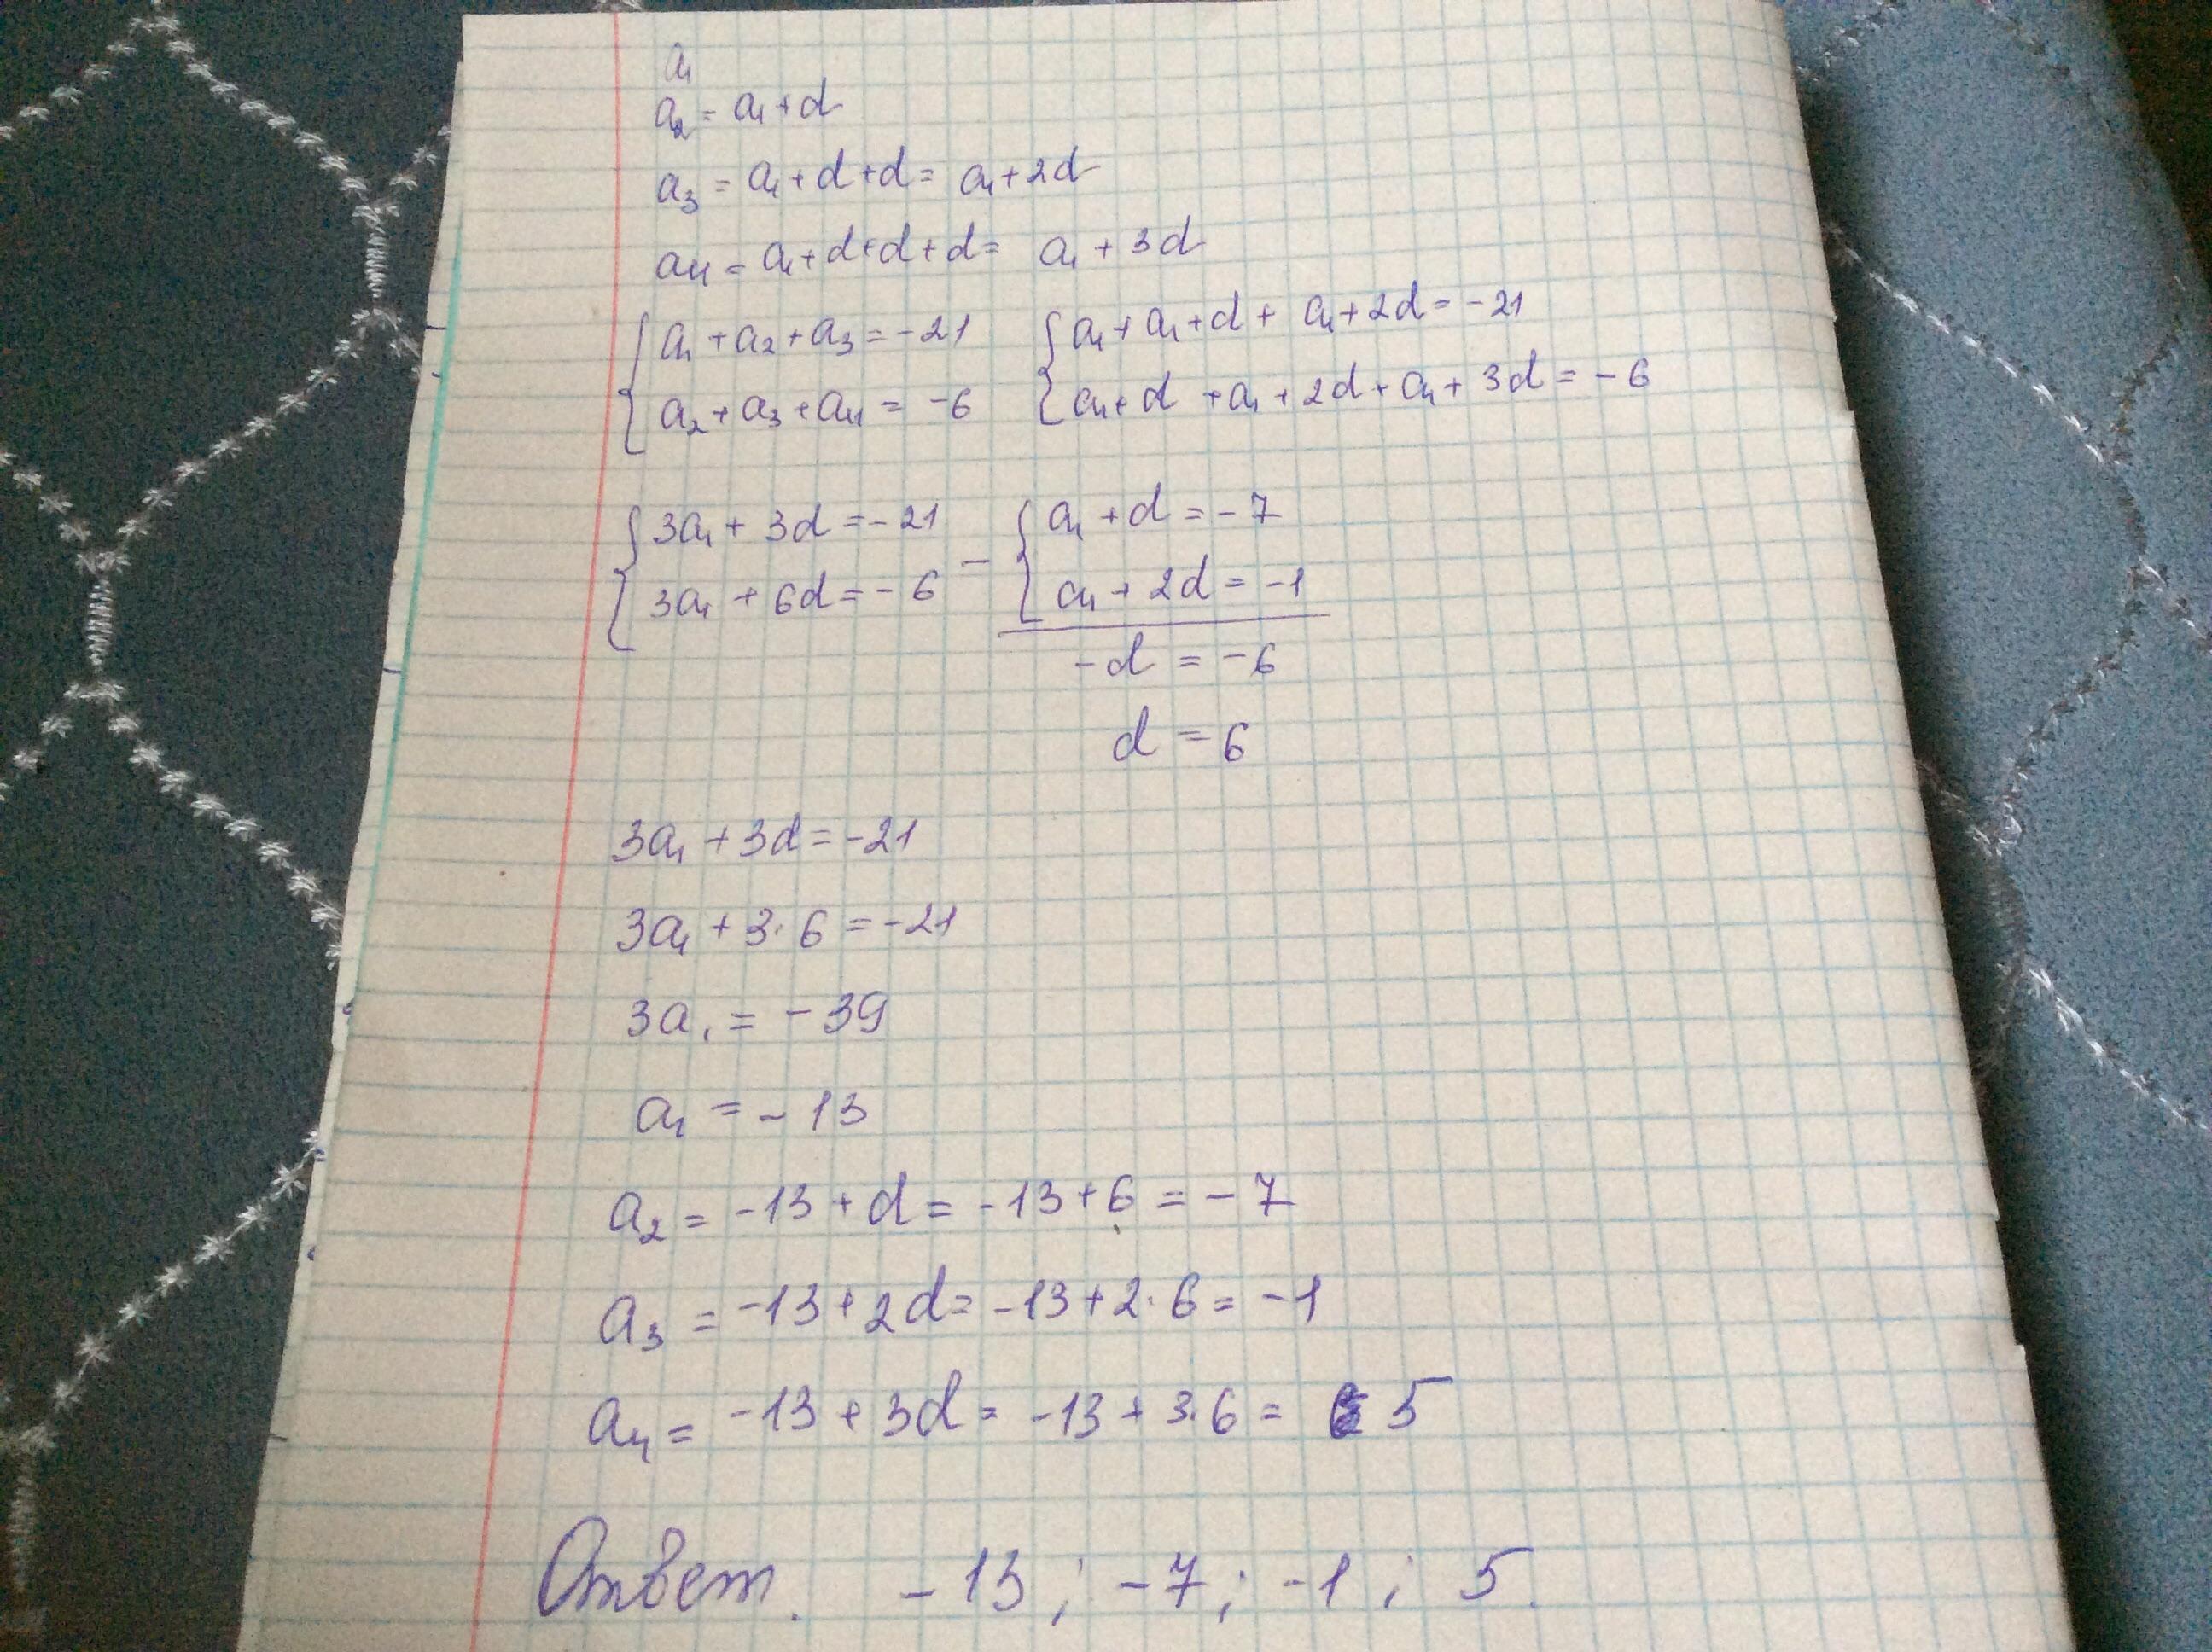 a₁
a₂ = a₁ + d
a₃ = a₁ + d + d = a₁ + 2d
a₄ = a₁ + d + d + d = a₁ + 3d
{ a₁ + a₂ + a₃ = -21 { a₁ + a₁ + d + a₁ + 2d = -21
a₂ + a₃ + a₄ = -6 a₁ + d + a₁ + 2d + a₁ + 3d = -6
{ 3a₁ + 3d = -21 - { a₁ + d = -7
3a₁ + 6d = -6 a₁ + 2d = -1
-d = -6
d = 6
3a₁ + 3d = -21
3a₁ + 3·6 = -21
3a₁ = -39
a₁ = -13
a₂ = -13 + d = -13 + 6 = -7
a₃ = -13 + 2d = -13 + 2·6 = -1
a₄ = -13 + 3d = -13 + 3·6 = 5
Ответ. -13; -7; -1; 5.